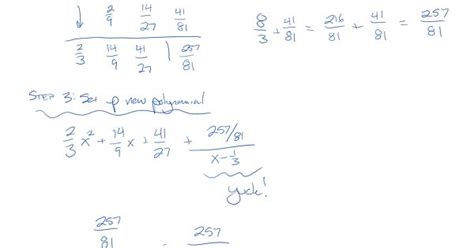 ↓ 2/9 14/27 41/81
2/3 14/9 41/27 | 257/81
8/3 + 41/81 = 216/81 + 41/81 = 257/81
STEP 3: Set up new polynomial
2/3 x² + 14/9 x + 41/27 + (257/81)/(x - 1/3)
yuck!
257/81 257